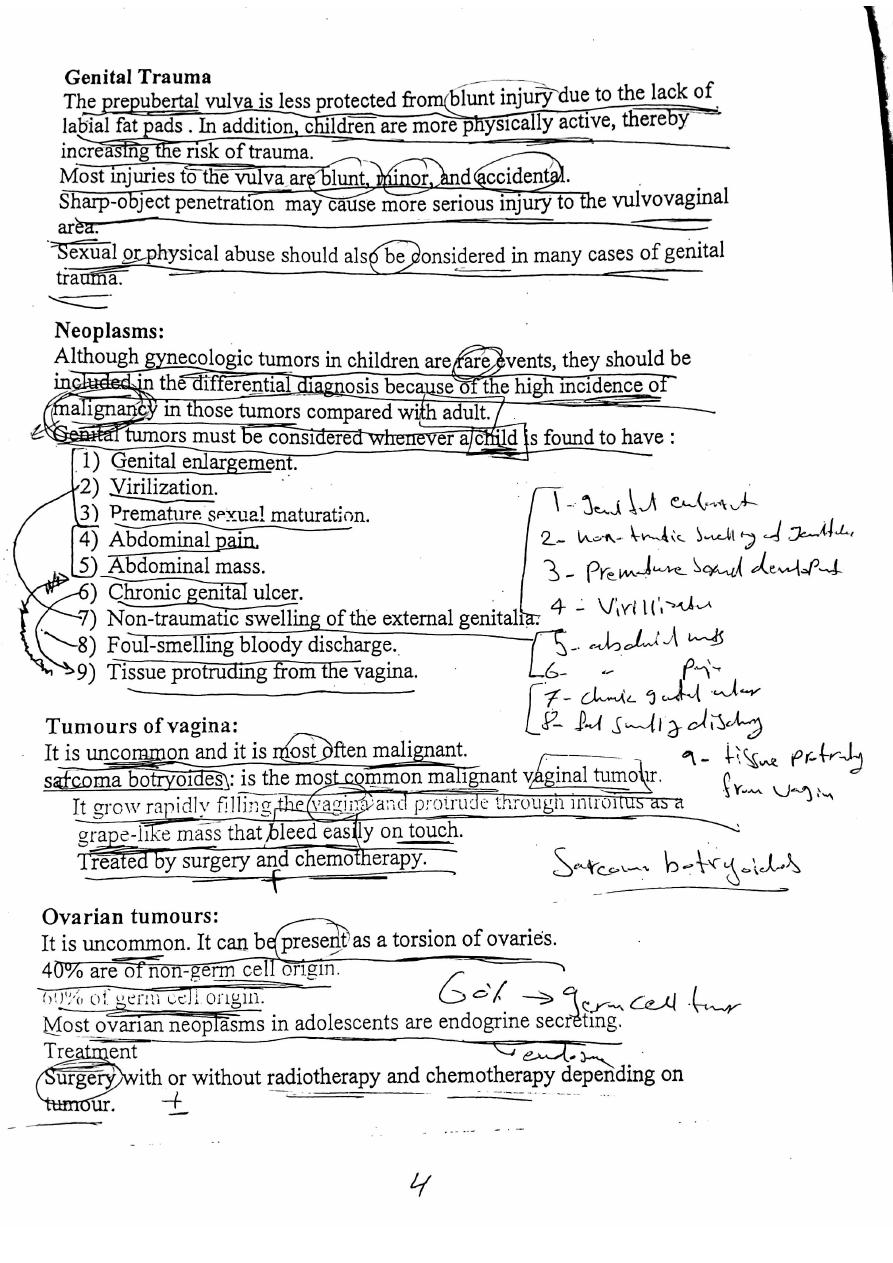 Genital Trauma
The prepubertal vulva is less protected from blunt injury due to the lack of
labial fat pads . In addition, children are more physically active, thereby
increasing the risk of trauma.
Most injuries to the vulva are blunt, minor, and accidental.
Sharp-object penetration may cause more serious injury to the vulvovaginal
area.
Sexual or physical abuse should also be considered in many cases of genital
trauma.
Neoplasms:
Although gynecologic tumors in children are rare events, they should be
included in the differential diagnosis because of the high incidence of
malignancy in those tumors compared with adult.
Genital tumors must be considered whenever a child is found to have :
1) Genital enlargement.
2) Virilization.
3) Premature sexual maturation.
4) Abdominal pain.
5) Abdominal mass.
6) Chronic genital ulcer.
7) Non-traumatic swelling of the external genitalia.
8) Foul-smelling bloody discharge.
9) Tissue protruding from the vagina.
1-
2- non-
3- Premature
4-
5-
6-
7-
8-
9- tissue
from vagin
Tumours of vagina:
It is uncommon and it is most often malignant.
sarcoma botryoides : is the most common malignant vaginal tumour.
It grow rapidly filling the vagina and protrude through introitus as a
grape-like mass that bleed easily on touch.
Treated by surgery and chemotherapy.
+
Sarcoma botryoides
Ovarian tumours:
It is uncommon. It can be present as a torsion of ovaries.
40% are of non-germ cell origin.
60% of germ cell origin.
60% → germ cell
Most ovarian neoplasms in adolescents are endogrine secreting.
Treatment
Surgery with or without radiotherapy and chemotherapy depending on
tumour.
±
4